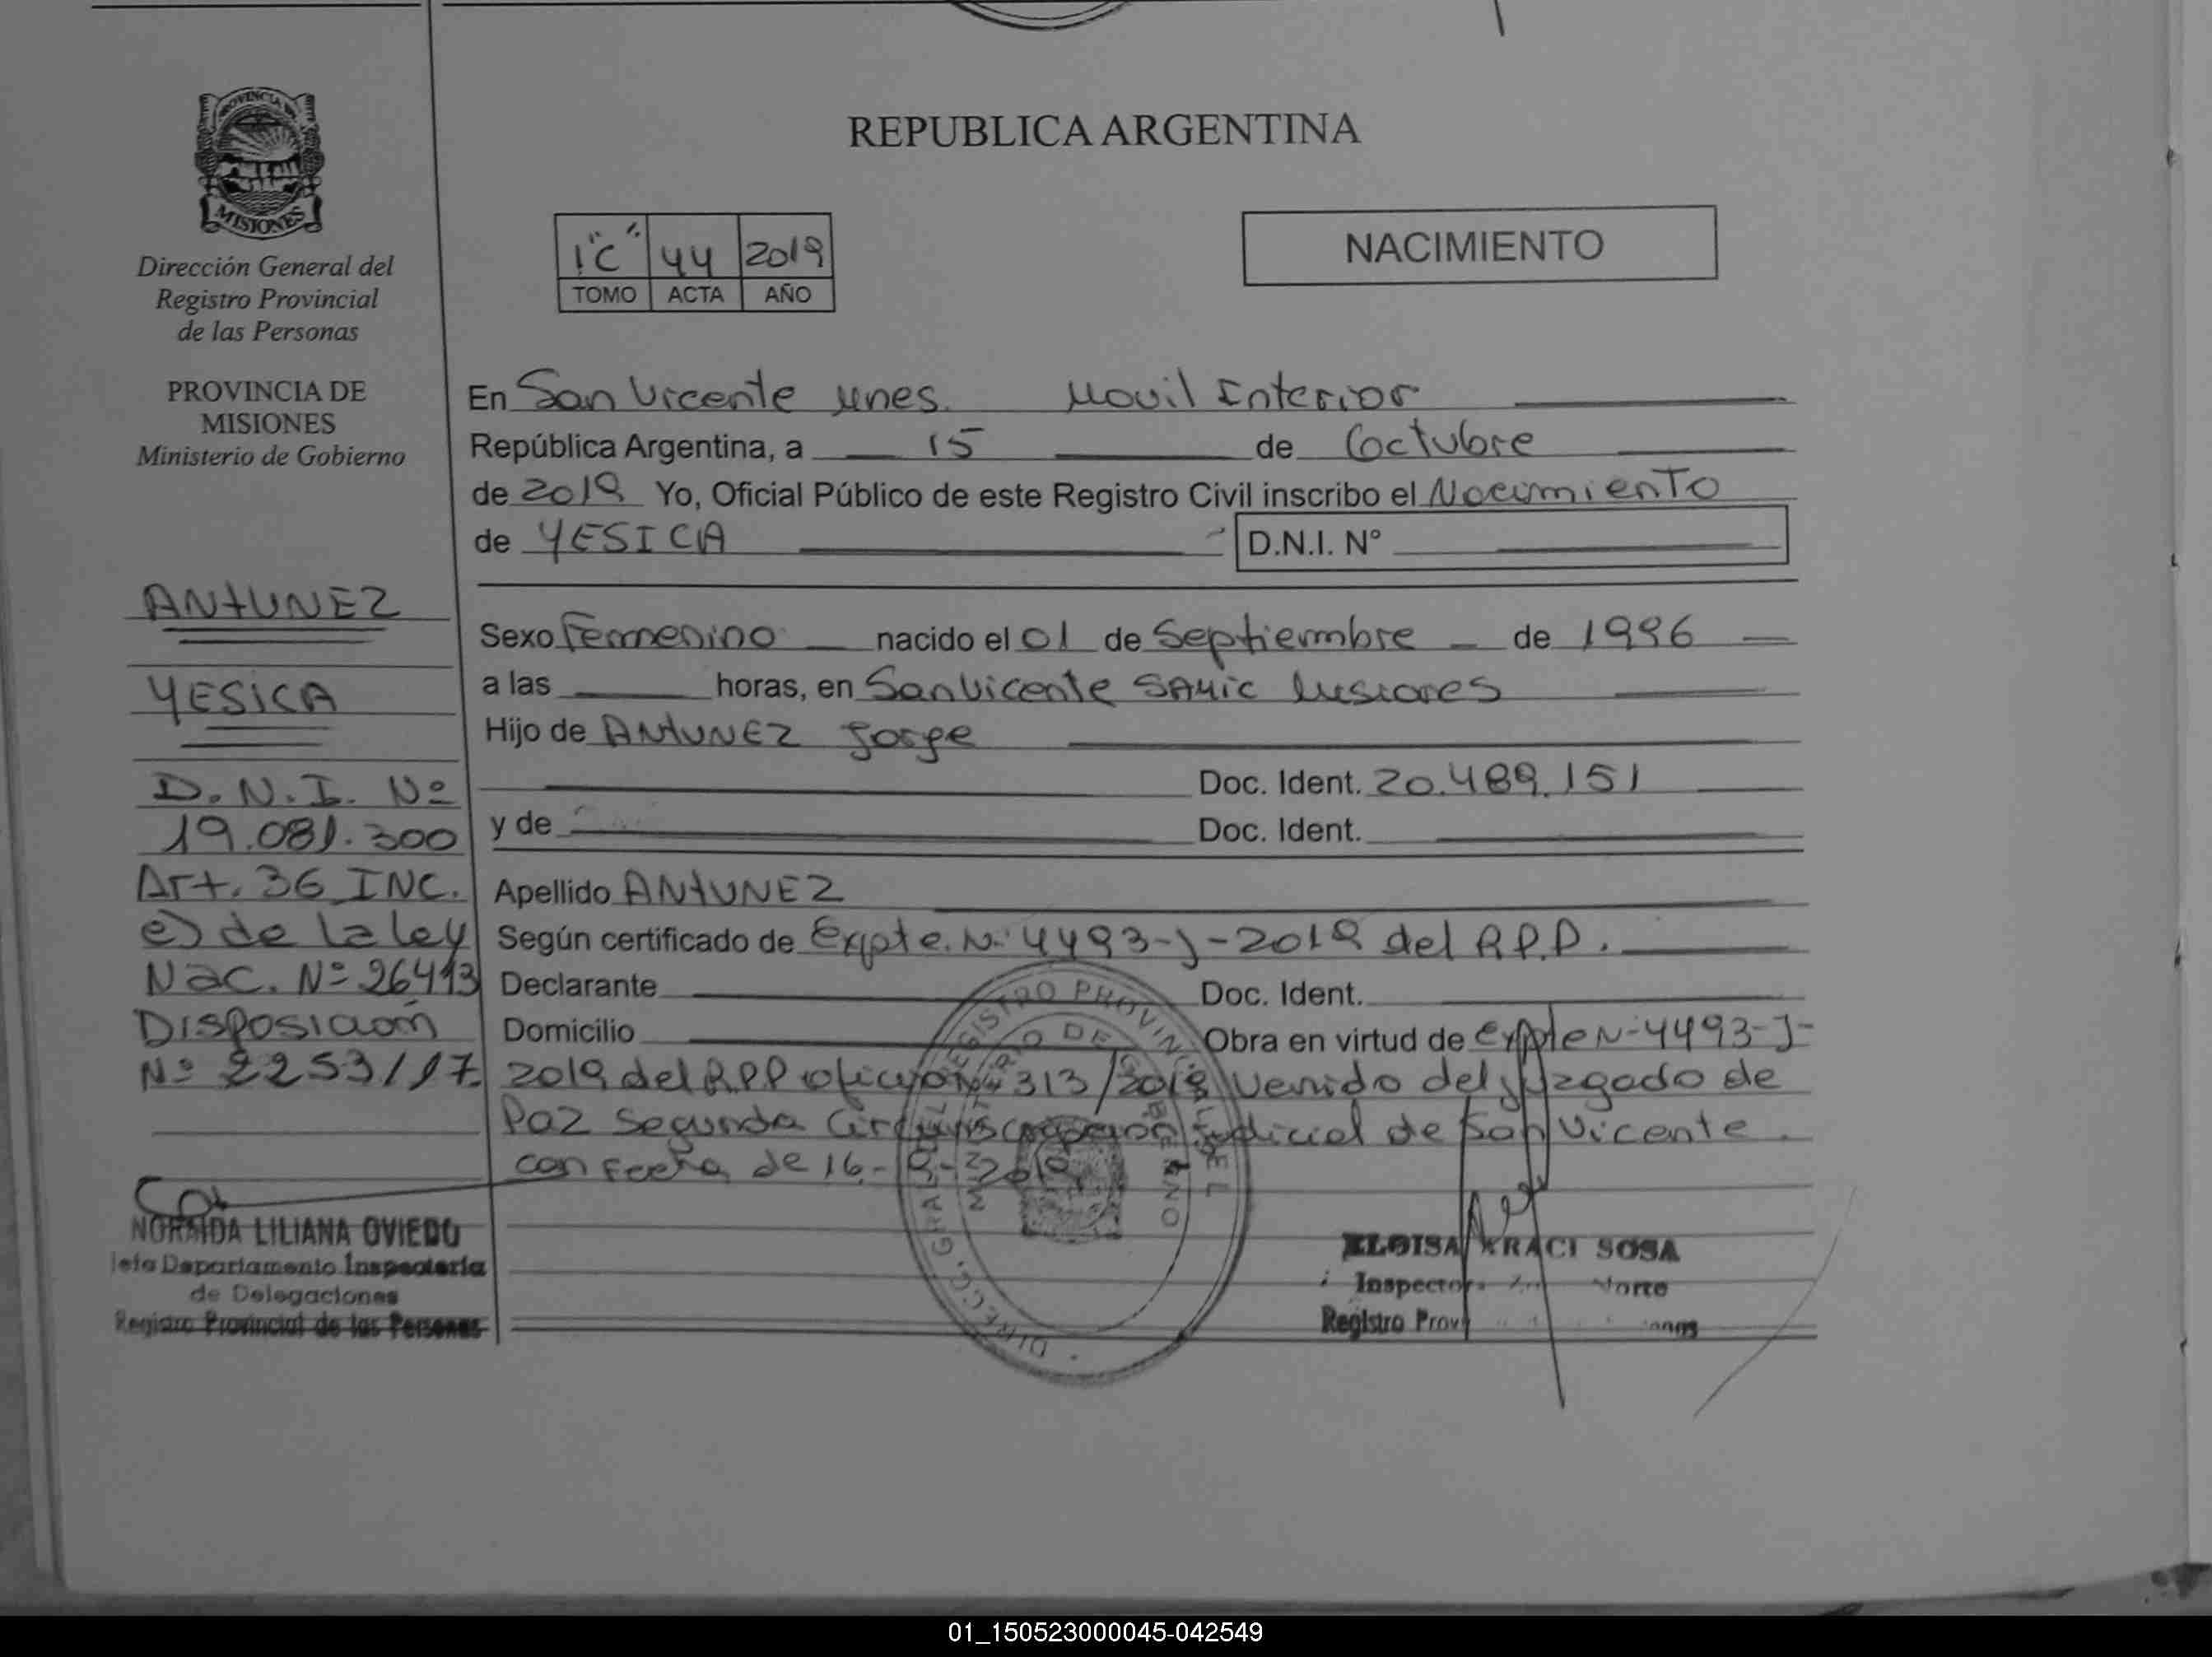 REPUBLICA ARGENTINA
PROVINCIA DE
MISIONES
Dirección General del
Registro Provincial
de las Personas
PROVINCIA DE
MISIONES
Ministerio de Gobierno
ANTUNEZ
YESICA
D.N.I. Nº
19.081.300
Art. 36 INC.
e) de la ley
Nac. Nº 26413
Disposición
Nº 2253/17
NORMIDA LILIANA OVIEDO
Jefa Departamento Inspectoría
de Delegaciones
Registro Provincial de las Personas
1"C" 44 2019
TOMO ACTA AÑO
NACIMIENTO
En San Vicente Mnes. Movil Interior
República Argentina, a 15 de Octubre
de 2019 Yo, Oficial Público de este Registro Civil inscribo el Nacimiento
de YESICA D.N.I. Nº
Sexo Femenino nacido el 01 de Septiembre de 1996
a las horas, en San Vicente SAMIC Misiones
Hijo de ANTUNEZ Jorge
Doc. Ident. 20.489.151
y de Doc. Ident.
Apellido ANTUNEZ
Según certificado de Expte. Nº 4493-J-2019 del R.P.P.
Declarante Doc. Ident.
Domicilio Obra en virtud de Expte Nº 4493-J-
2019 del RPP oficio Nº 313/2019 Venido del juzgado de
Paz Segunda Circunscripcion judicial de San Vicente
con fecha de 16-
DIRECC. GRAL. DEL REGISTRO PROVINCIAL DE L
MINISTERIO DE GOBIERNO
ELOISA ARACI SOSA
Inspectora Norte
Registro
01_150523000045-042549